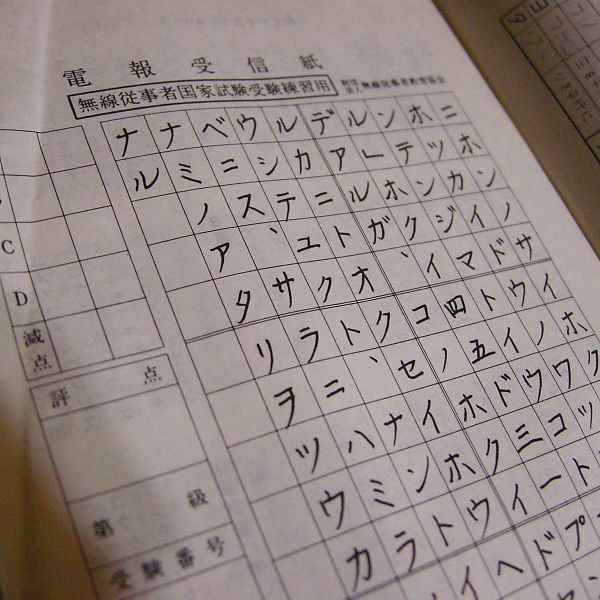 電報受信紙
無線従事者国家試験受験練習用
財団法人 無線従事者教育協会
ニホンノサイホク
ホツカイドウノワツ
ンテンジマトイウコト
ルーホクイ四五ド三ープ
デアルガ、コノホクィド
ルカニトオクセイホウヘ
ウシテユクト、ナントイ
ベニス、サラニハミラ
ナミノアタリヲツウカ
ナル
C
D
減点
評点
第 級
受験番号